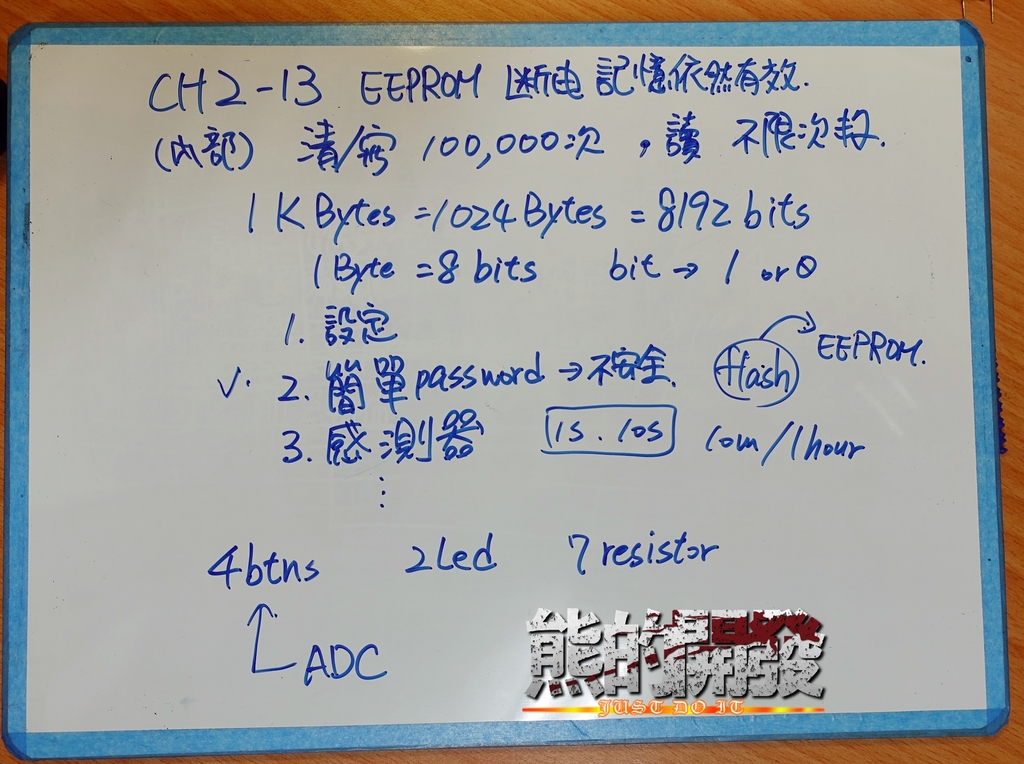 CH2-13 EEPROM 斷电 記憶依然有效.
(內部) 清/寫 100,000次,讀 不限次數.
1 K Bytes =1024 Bytes = 8192 bits
1 Byte = 8 bits bit → 1 or 0
1. 設定
✓. 2. 簡單 password → 不安全. flash EEPROM.
3. 感測器 1s . 10s 10m/1hour
⋮
4btns 2Led 7 resistor
ADC
熊的開發
JUST DO IT